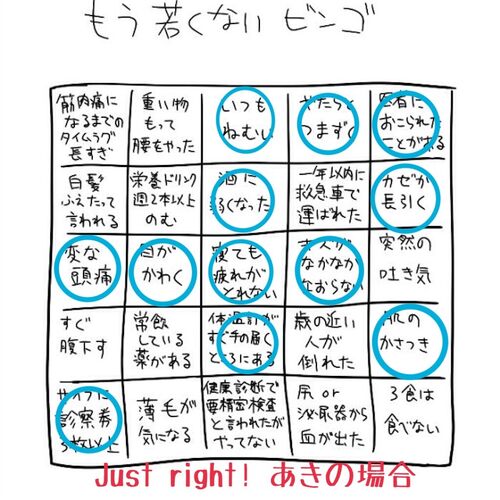 もう若くない ビンゴ
筋肉痛に
なるまでの
タイムラグ
長すぎ
重い物
もって
腰をやった
いつも
ねむい
やたらと
つまずく
医者に
おこられた
ことがある
白髪
ふえたって
言われる
栄養ドリンク
週2本以上
のむ
酒に
弱くなった
一年以内に
救急車で
運ばれた
カゼが
長引く
変な
頭痛
目が
かわく
寝ても
疲れが
とれない
なかなか
なおらない
突然の
吐き気
すぐ
腹下す
常飲
している
薬がある
体温計が
すぐ手の届く
ところにある
歳の近い
人が
倒れた
肌の
かさつき
サイフに
診察券
3枚以上
薄毛が
気になる
健康診断で
要精密検査
と言われたが
やってない
尻 or
泌尿器から
血が出た
3食は
食べない
Just right! あきの場合